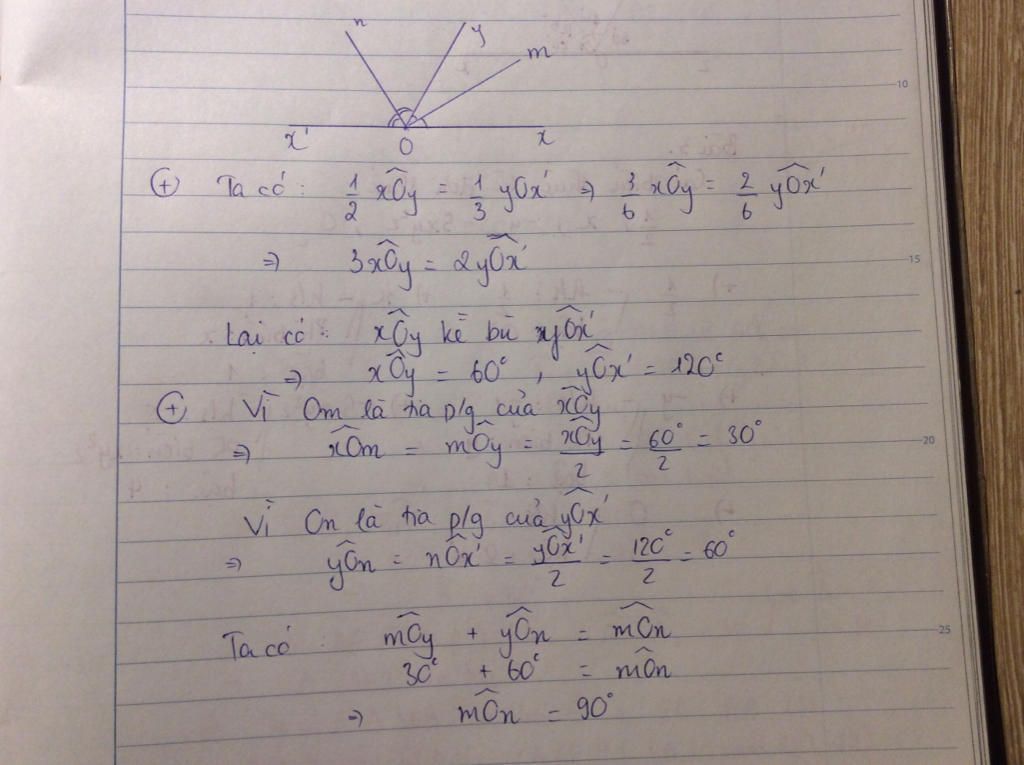 n
y
m
10
x'
O
x
⊕ Ta có : 1/2 xÔy = 1/3 yOx' => 3/6 xÔy = 2/6 yÔx'
15
=> 3xÔy = 2yÔx'
Lại có : xÔy kề bù yÔx'
=> xÔy = 60° , yÔx' = 120°
⊕ Vì Om là tia p/g của xÔy
=> xÔm = mÔy = xÔy/2 = 60°/2 = 30°
20
Vì On là tia p/g của yÔx'
=> yÔn = nÔx' = yÔx'/2 = 120°/2 = 60°
Ta có : mÔy + yÔn = mÔn
25
30° + 60° = mÔn
=> mÔn = 90°